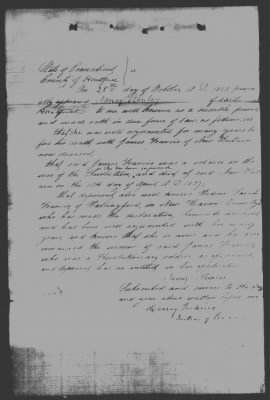 State of Connecticut
County of Hartford
On 28th day of October A.D. 1853, person
ally appeared Nancy Stanley of
Hartford to me well known as a credible person
and made oath in due form of law, as follows, viz
that she was well acquainted for many years be
fore his death with James Francis of New Britain
now deceased,
that said James Francis was a soldier in the
war of the Revolution, and died at said New Brit
ain on the 15th day of April A.D. 18
that deponent also well knows Widow Sarah
Francis of Wallingford, in New Haven County
who has made the declaration hereunto annexed
and has been well acquainted with her many
years, and knows that she is now and has ever
remained the widow of said James Francis
who was a Revolutionary soldier as aforesaid, and
deponent has no interest in her application
Nancy Stanley
Subscribed and sworn to the day
and year above written before me
Justice of Peace